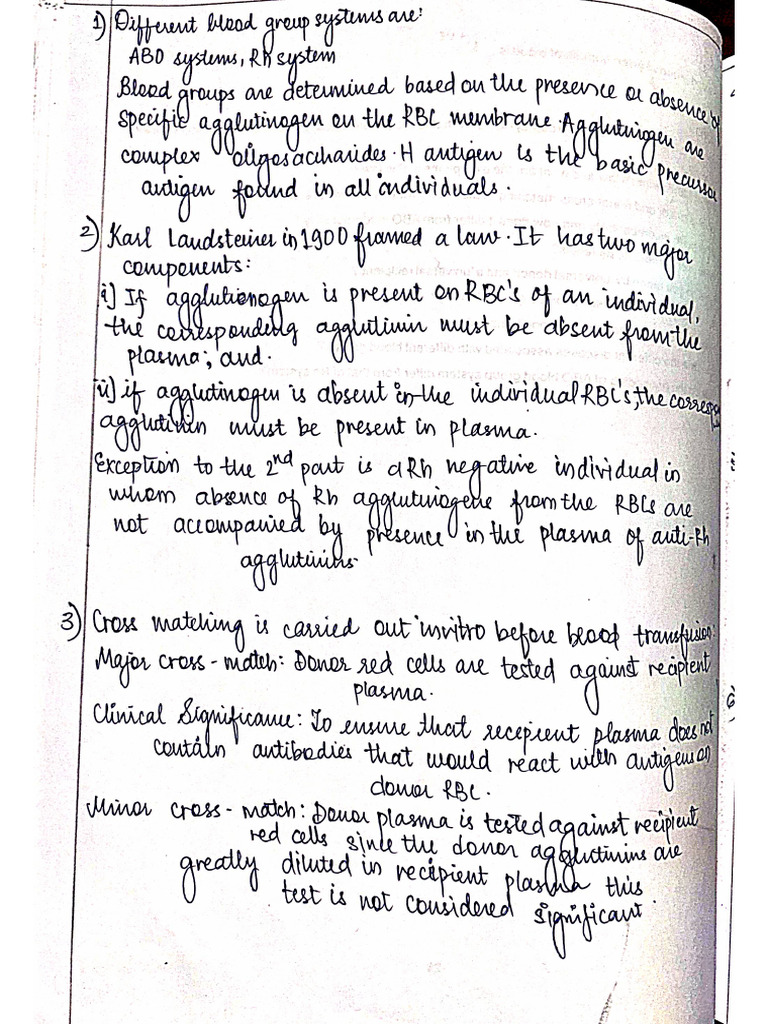 1) Different blood group systems are:
ABO systems, Rh system
Blood groups are determined based on the presence or absence of
specific agglutinogen on the RBC membrane. Agglutinogen are
complex oligosaccharides. H antigen is the basic precursor
antigen found in all individuals.
2) Karl Landsteiner in 1900 framed a law. It has two major
components:
i) If agglutionogen is present on RBC's of an individual,
the corresponding agglutinin must be absent from the
plasma; and.
ii) if agglutinogen is absent in the individual RBC's, the corresp
agglutinin must be present in plasma.
Exception to the 2nd part is a Rh negative individual in
whom absence of Rh agglutinogene from the RBCs are
not accompanied by presence in the plasma of anti-Rh
agglutinins.
3) Cross matching is carried out invitro before blood transfusion:
Major cross-match: Donor red cells are tested against recipient
plasma.
Clinical Significance: To ensure that recepient plasma does not
contain antibodies that would react with antigens on
donor RBC.
Minor cross-match: Donor plasma is tested against recipient
red cells since the donor agglutinins are
greatly diluted in recipient plasma this
test is not considered significant.
6